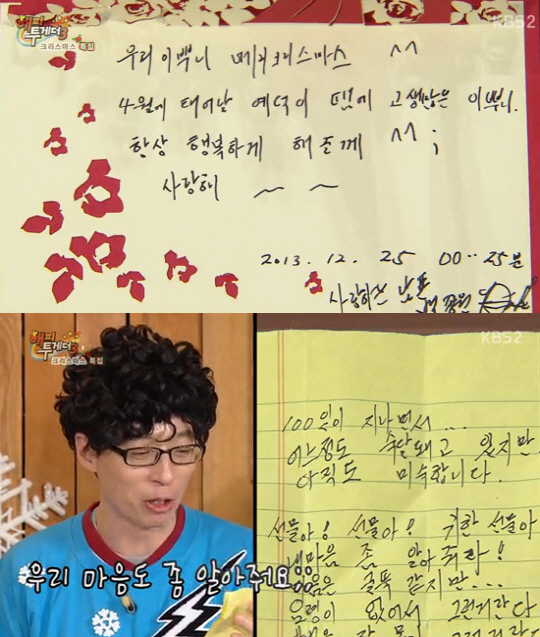 해피
투게더3
크리스마스 특집
KBS2
우리 이쁘니 메리크리스마스 ^^
4월에 태어날 예덕이 땜에 고생많은 이쁘니.
항상 행복하게 해 줄께 ^^;
사랑해 ~ ~
2013. 12. 25 00..25분
사랑하는
해피
투게더3
크리스마스 특집
KBS2
100일이 지나면서...
어느정도 숙달되고 있지만
아직도 미숙합니다.
선물아! 선물아! 귀한 선물아
내마음 좀 알아줘라!
마음은 굴뚝 같지만...
요령이 없어서 그런거란다
우리 마음도 좀 알아줘요!!